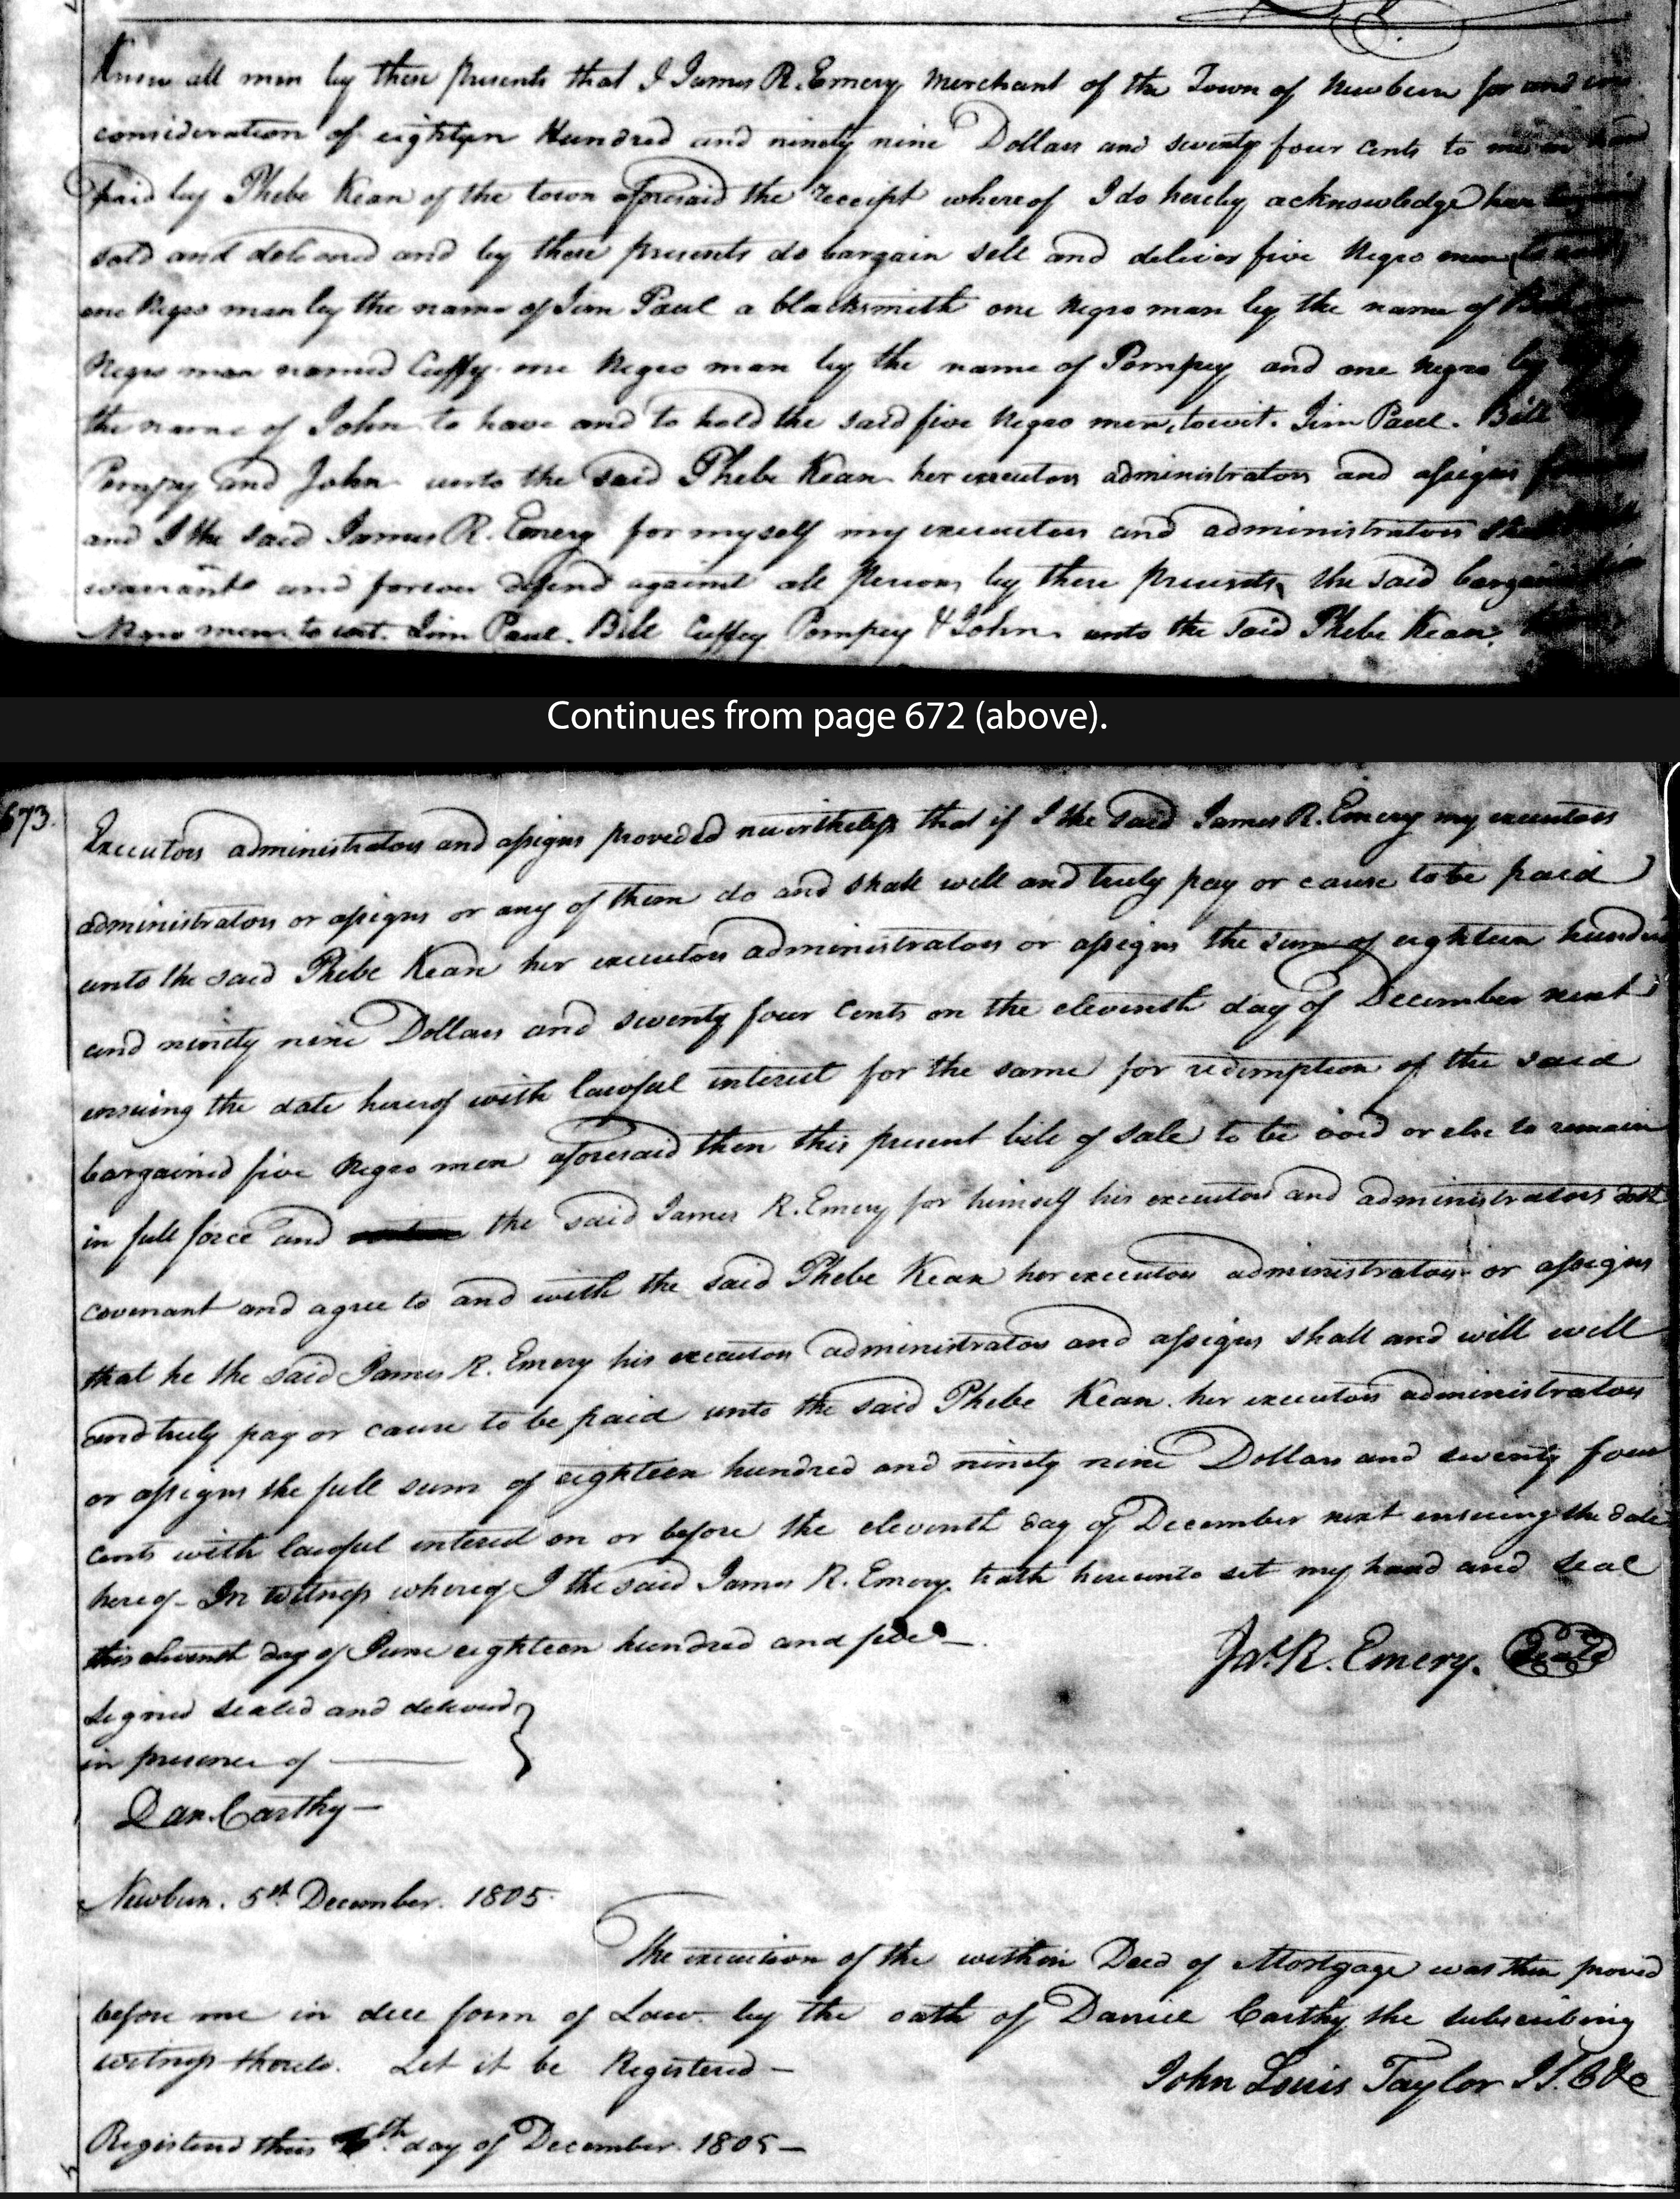 Know all men by these presents that I James R. Emery Merchant of the Town of Newbern for and in
consideration of eighteen Hundred and ninety nine Dollars and seventy four cents to me in hand
paid by Phebe Kean of the town aforesaid the receipt whereof I do hereby acknowledge have
sold and delivered and by these presents do bargain sell and deliver five Negro men
one Negro man by the name of Jim Paul a blacksmith one Negro man by the name of
Negro man named Cuffy one Negro man by the name of Pompey and one negro by
the name of John to have and to hold the said five Negro men, towit. Jim Paul. Bill
Pompey and John unto the said Phebe Kean her executors administrators and assigns
and I the said James R. Emery for myself my executors and administrators shall
warrant and forever defend against all Persons by these presents the said
Negro men to wit. Jim Paul. Bill Cuffey Pompey & John unto the said Phebe Kean.
Continues from page 672 (above).
673.
Executors administrators and assigns proveded nevertheless that if I the said James R. Emery my executors
administrators or assigns or any of them do and shall well and truly pay or cause to be paid
unto the said Phebe Kean her executors administrators or assigns the sum of eighteen hundred
and ninety nine Dollars and seventy four Cents on the eleventh day of December next
ensuing the date hereof with lawful interest for the same for redemption of the said
bargained five Negro men aforesaid then this present bill of sale to be void or else to remain
in full force and the said James R. Emery for himself his executors and administrators doth
covenant and agree to and with the said Phebe Kean her executors administrators or assigns
that he the said James R. Emery his executors administrators and assigns shall and will well
and truly pay or cause to be paid unto the said Phebe Kean her executors administrators
or assigns the full sum of eighteen hundred and ninety nine Dollars and seventy four
Cents with lawful interest on or before the eleventh day of December next ensuing the date
hereof - In Witness whereof I the said James R. Emery hath hereunto set my hand and seal
this eleventh day of June eighteen hundred and five -.
Jas. R. Emery. Seal
Signed sealed and delivered }
in presence of
Dan. Carthy -
Newbern. 5th December. 1805.
The execution of the within Deed of Mortgage was then proved
before me in due form of Law by the oath of Daniel Carthy the subscribing
witness thereto. Let it be Registered -
John Louis Taylor
Registered this day of December. 1805 -